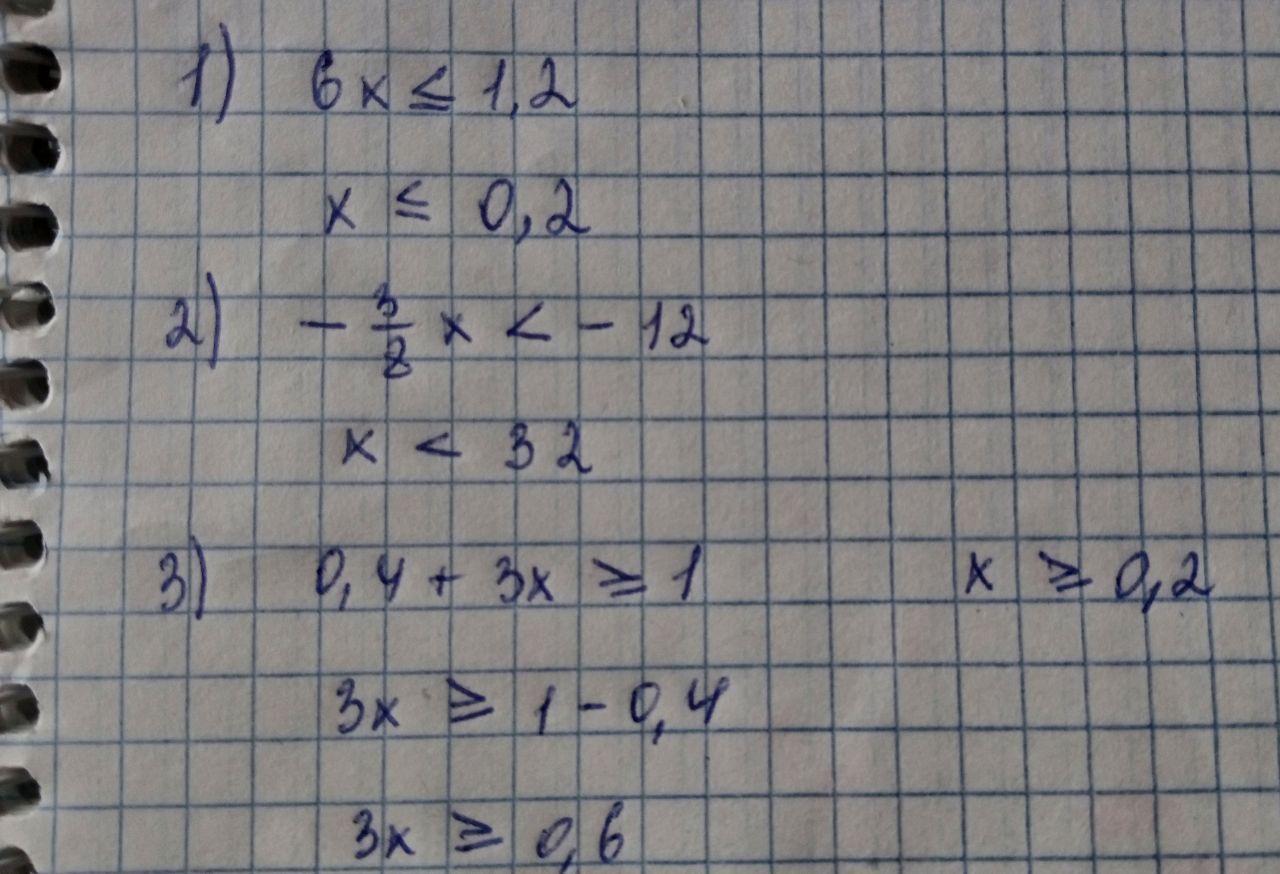 1) 6x ≤ 1,2
x ≤ 0,2
2) - 3/8 x < - 12
x < 32
3) 0,4 + 3x ≥ 1
3x ≥ 1 - 0,4
3x ≥ 0,6
x ≥ 0,2